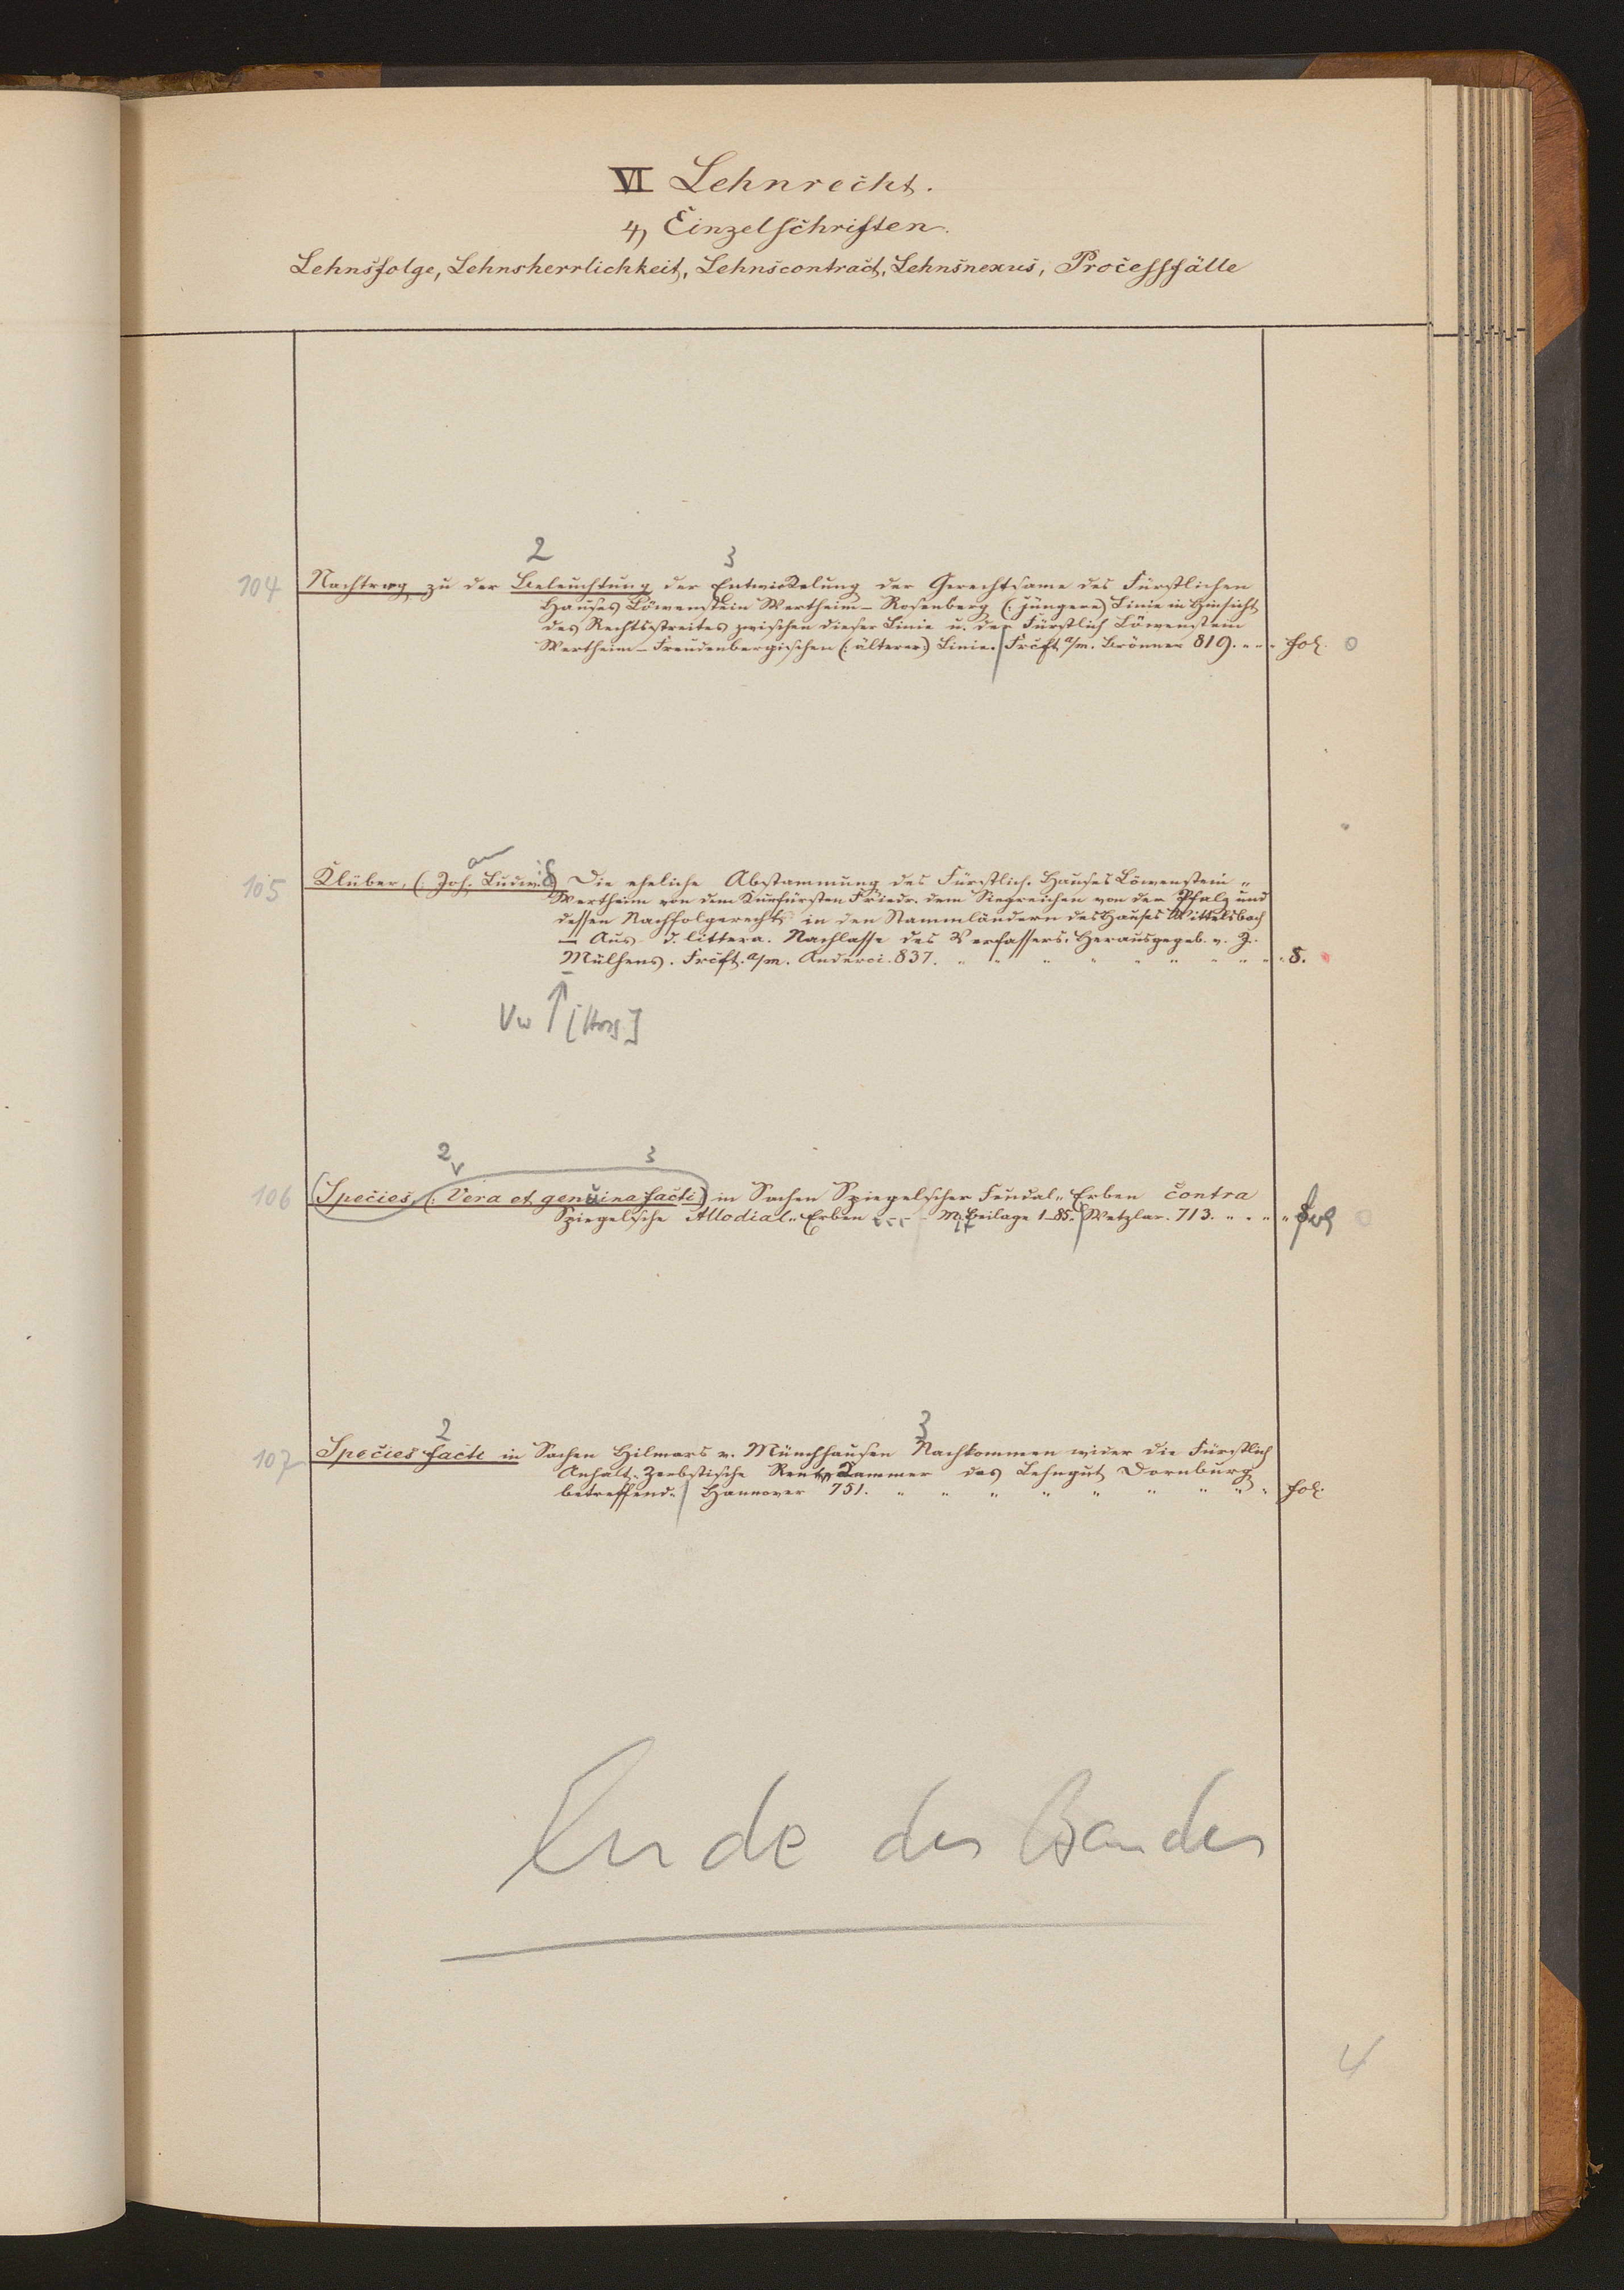 VI Lehnrecht.
4) Einzelschriften.
Lehnsfolge, Lehnsherrlichkeit, Lehnscontract, Lehnsnexus, Processfälle
2 3
104 Nachtrag zu der Beleuchtung der Entwickelung der Gerechtsame des Fürstlichen
Hauses Löwenstein Wertheim-Rosenberg (: jüngere) Linie in Hinsicht
des Rechtsstreites zwischen dieser Linie u. der Fürstlich Löwenstein
Wertheim-Freudenbergischen (: älterer) Linie. Frcft a/m. Brönner 819. fol. 0
105 Klüber, (: Joh. Ludwig) Die eheliche Abstammung des Fürstlich. Hauses Löwenstein
Wertheim von dem Kurfürsten Friedr. dem Siegreichen von der Pfalz und
dessen Nachfolgerecht in den Stammländern des Hauses Wittelsbach
— Aus d. littera. Nachlasse des Verfassers. Herausgegeb. v. J.
Mülhens. Frcft. a/m. 837. 8.
Vw ↑ [Hrsg]
2 3
106 Species, (: Vera et genuina facti) in Sachen Spiegelscher Feudal-Erben contra
Spiegelsche Allodial-Erben - Mit Beilage 1-85. Wetzlar. 713. fol 0
2 3
107 Species facti in Sachen Hilmars v. Münchhausen Nachkommen wider die Fürstlich
Anhalt-Zerbstische Rent Kammer das Lehngut Dornburg
betreffend. Hannover 751. fol.
Ende des Bandes
4